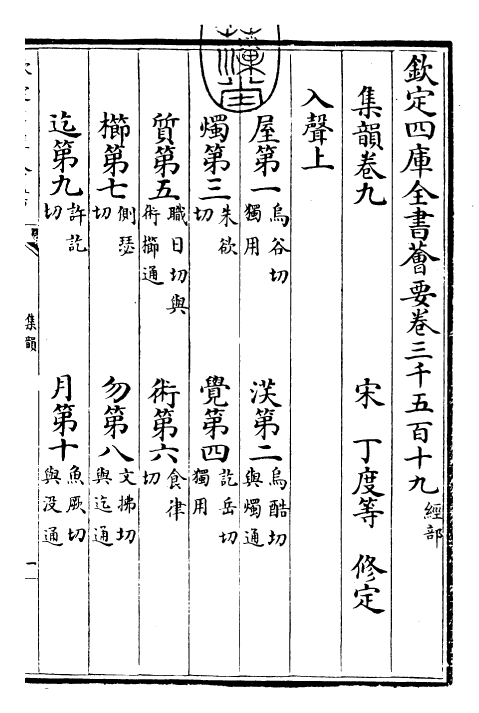 欽定四庫全書薈要卷三千五百十九 經部
集韻卷九 宋 丁度等 修定
入聲上
屋第一 烏谷切獨用 沃第二 烏酷切與燭通
燭第三 朱欲切 覺第四 訖岳切獨用
質第五 職日切與術櫛通 術第六 食律切
櫛第七 側瑟切 勿第八 文拂切與迄通
迄第九 許訖切 月第十 魚厥切與没通
集韻
一